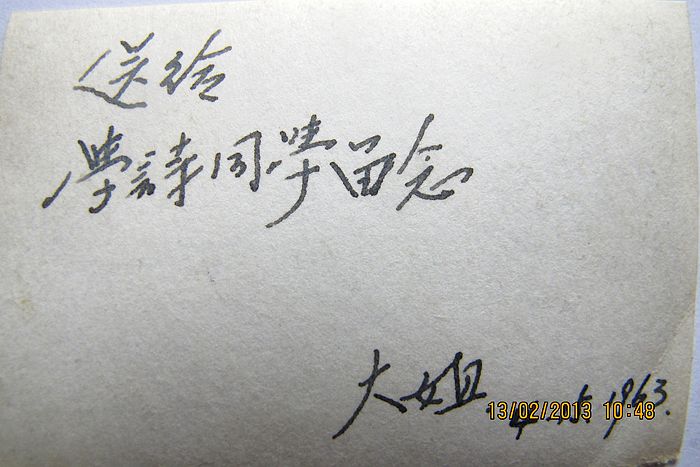 送给
學詩同學留念
大姐
4.15.1963.
13/02/2013 10:48